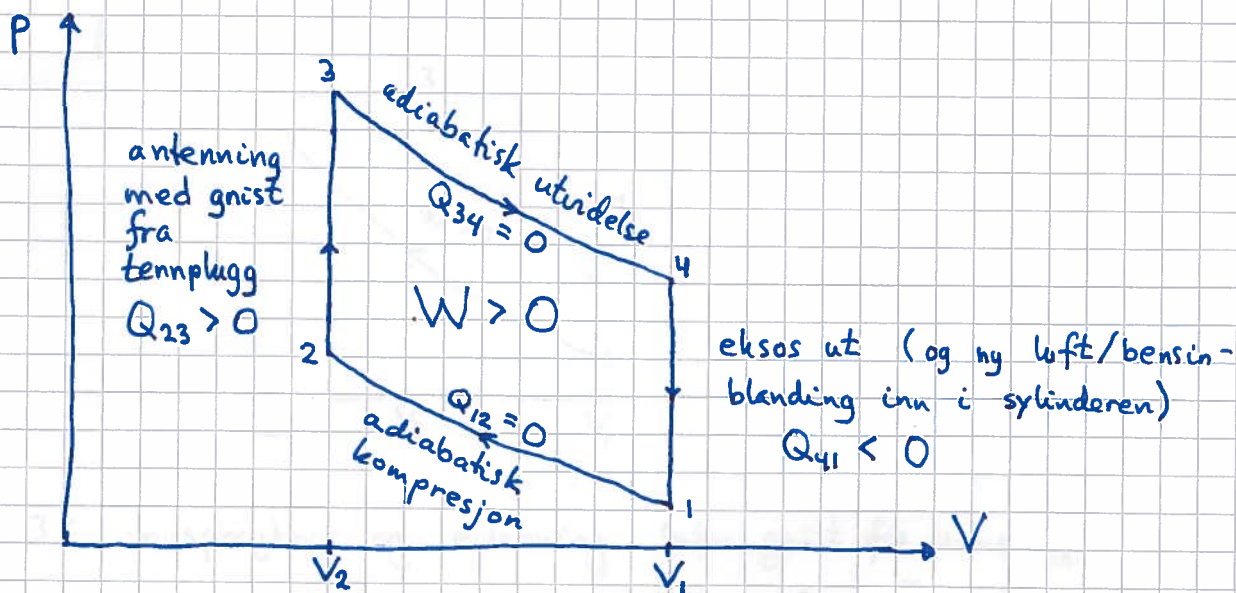 P
3
adiabatisk utvidelse
antenning
med gnist
fra
tennplugg
Q₂₃ > 0
Q₃₄ = 0
4
W > 0
2
eksos ut (og ny luft/bensin-
blanding inn i sylinderen)
Q₄₁ < 0
Q₁₂ = 0
adiabatisk
kompresjon
1
V
V₂
V₁